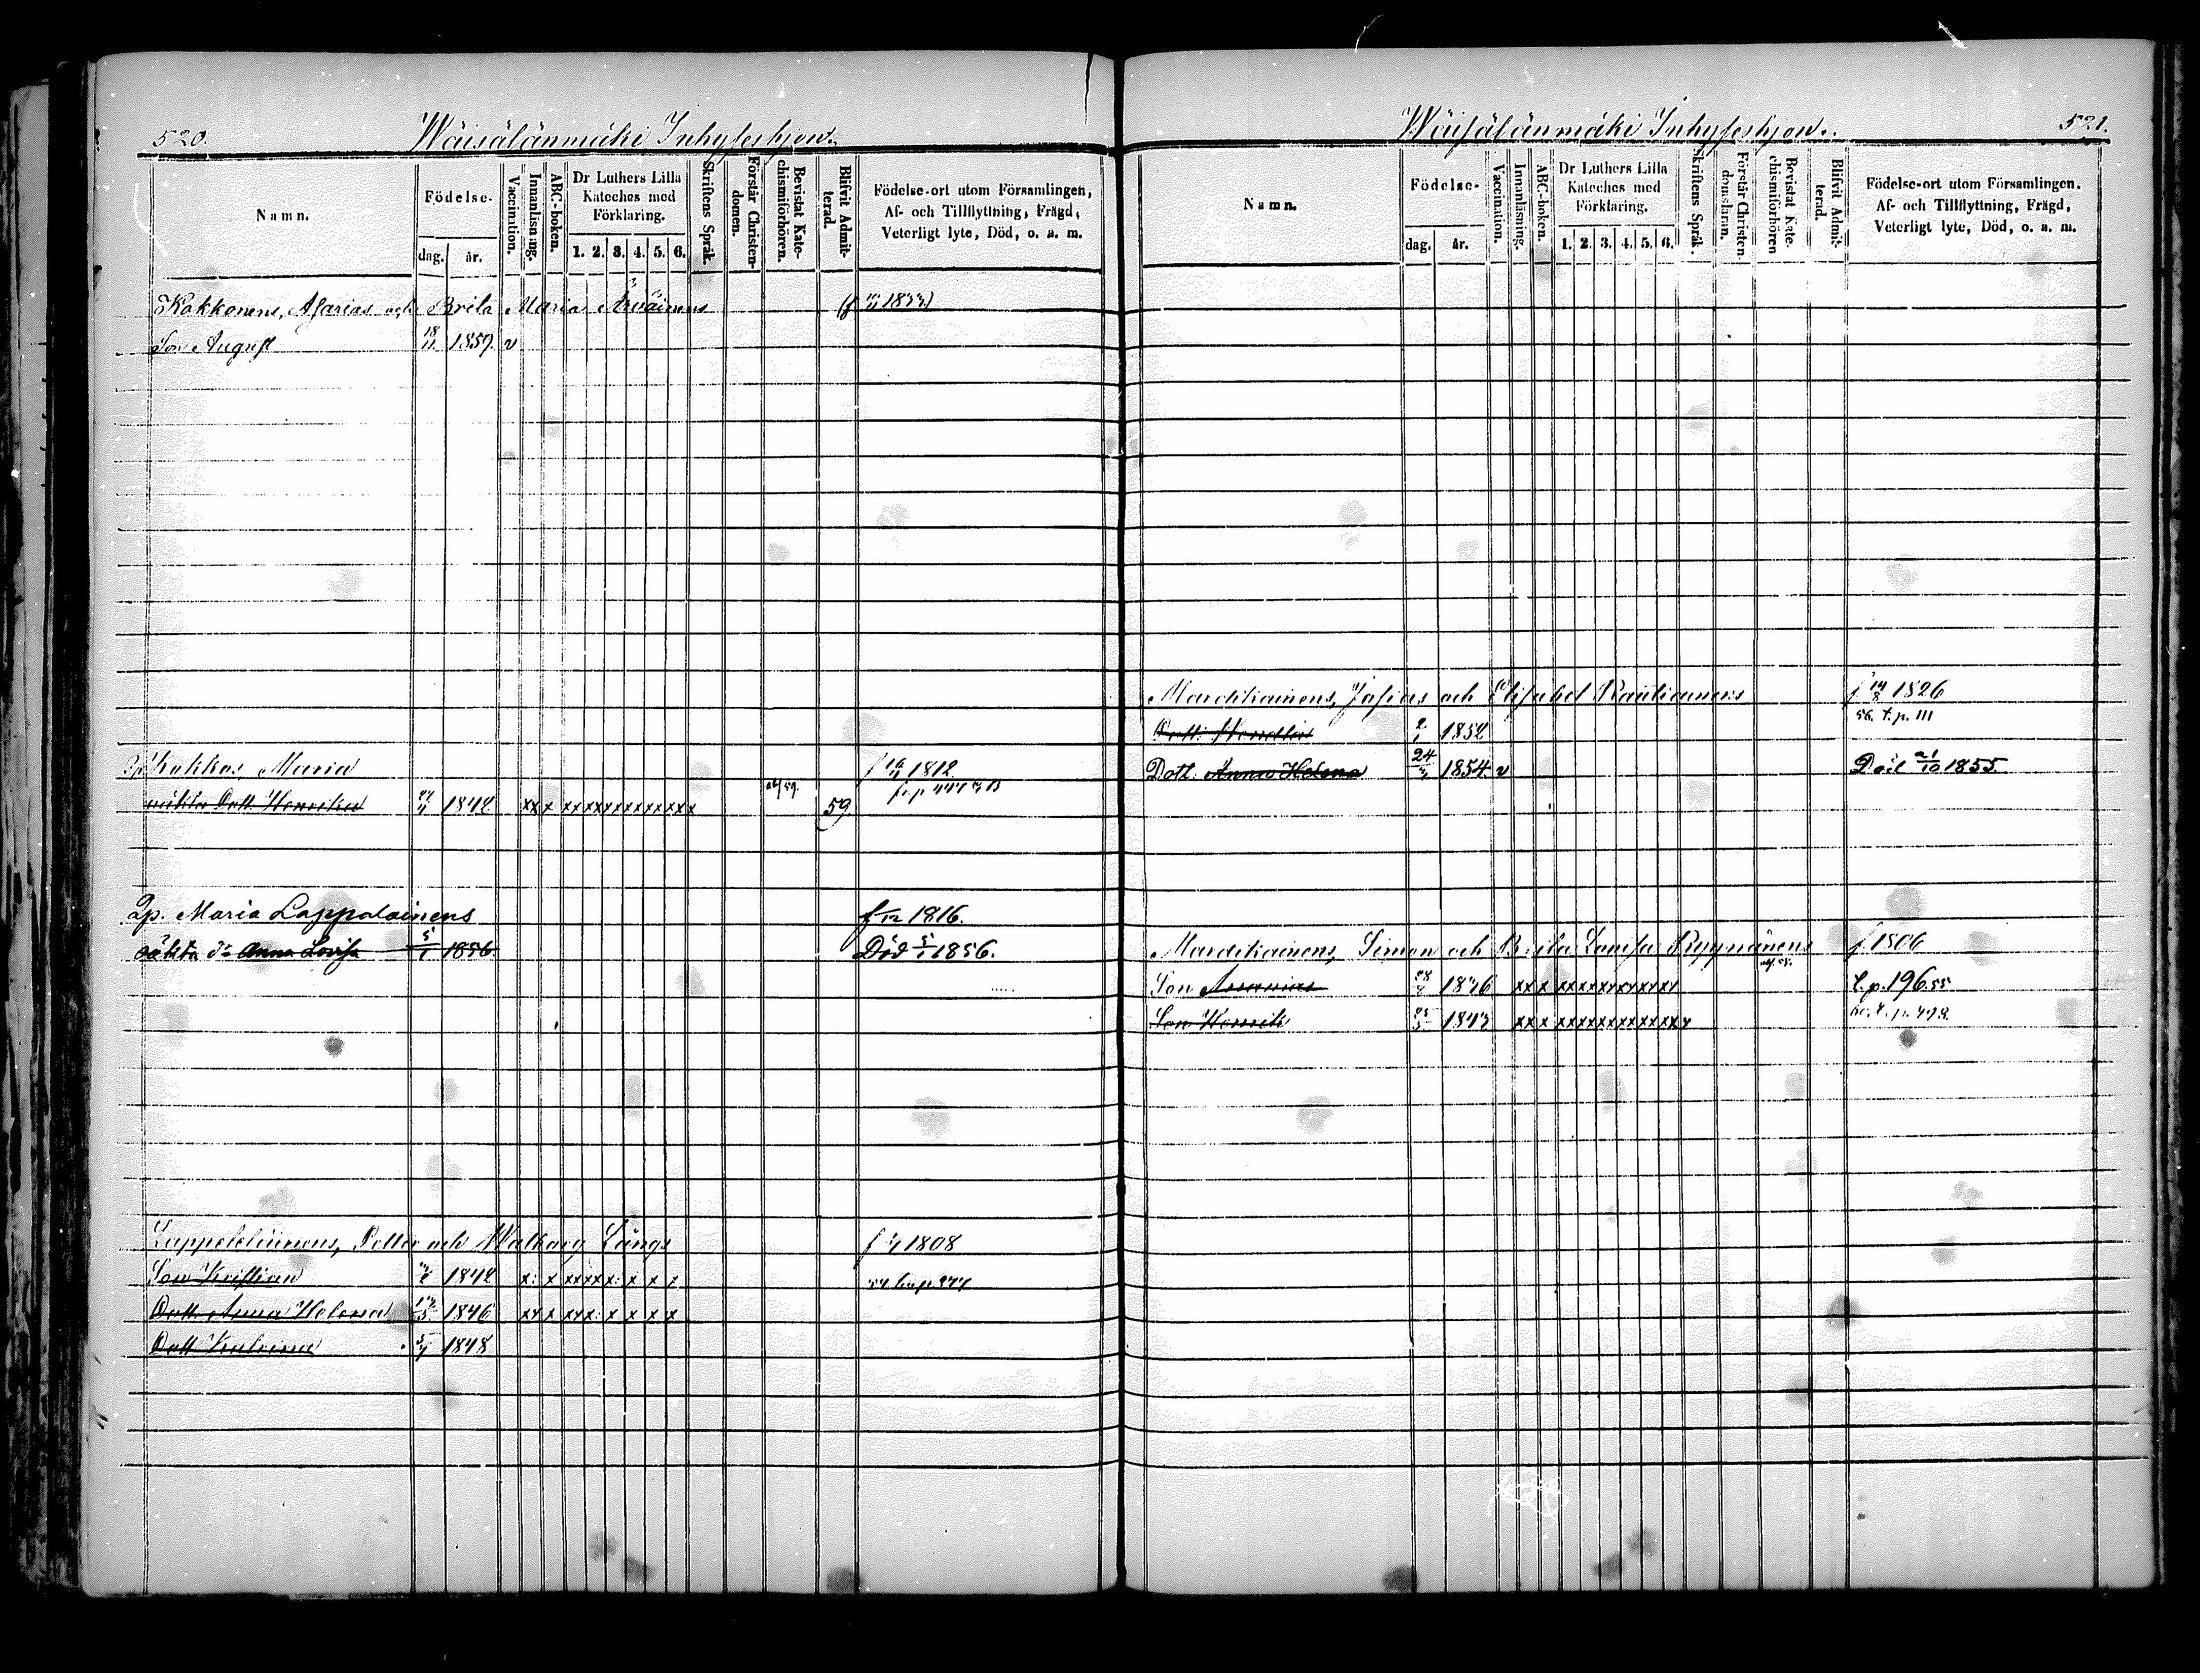 520.
Wäisälänmäki Inhyseshjon.
Namn.
Födelse-
dag. år.
Vaccination.
Innanläsning.
ABC-boken.
Dr Luthers Lilla Kateches med Förklaring.
1. 2. 3. 4. 5. 6.
Skriftens Språk.
Förstår Christendomen.
Bevistat Katechismiförhören.
Blifvit Admitterad.
Födelse-ort utom Församlingen,
Af- och Tillflyttning, Frägd,
Veterligt lyte, Död, o. s. m.
Kokkonens, Asarias och Brita Maria
Son August 18/11 1859. v
Kokkos, Maria f 1812
oäkta Dott. Henrika 1842 xxx xxxxxxxxxxxxx 59.
Lp. Maria Lappalainens f /12 1816.
oäkta dr Anna Lovisa 5/1 1856. Död 5/1 1856.
Lappalainens, Petter och Walborg Längs f 1808
Son Kristian 1842 x: x xxxxx: x x x
Dott. Anna Helena 1846 xxx xxx: x x x x
Dott Katrina 5/4 1848
521.
Wäisälänmäki Inhyseshjon.
Namn.
Födelse-
dag. år.
Vaccination.
Innanläsning.
ABC-boken.
Dr Luthers Lilla Kateches med Förklaring.
1. 2. 3. 4. 5. 6.
Skriftens Språk.
Förstår Christendomsläran.
Bevistat Katechismiförhören
Blifvit Admitterad.
Födelse-ort utom Församlingen.
Af- och Tillflyttning, Frägd,
Veterligt lyte, Död, o. s. m.
Mardikainens, Josias och Elisabet Rautiainens f 14/8 1826
56. t. p. 111
Dott. 2/1 1852
Dott. Anna Helena 24 1854 v Död 21/10 1855.
Mardikainens, Simon och Brita Lovisa Ryynänens f. 1806
Son 1836 xxx xxxxxxxxxxx t. p. 196.55
Son Henrik 1843 xxx xxxxxxxxxxxxx